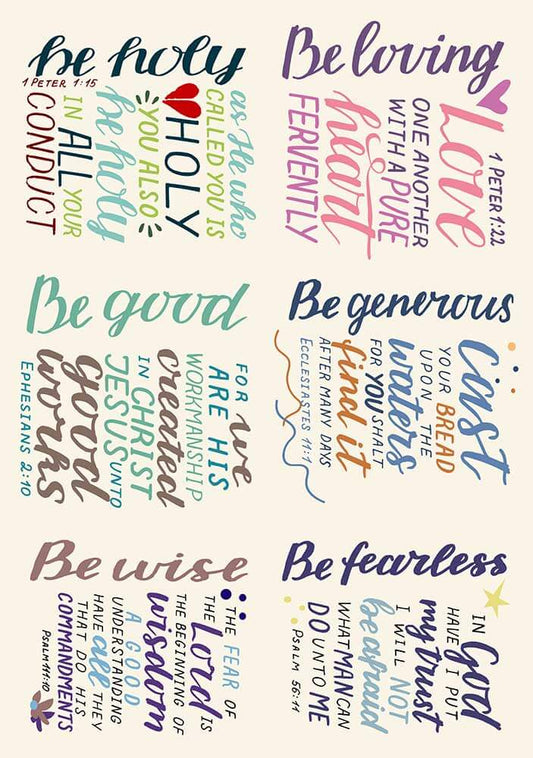 be holy
1 PETER 1:15
as He who
CALLED YOU IS
HOLY
YOU ALSO
be holy
IN ALL YOUR
CONDUCT
Be loving
Love
1 PETER 1:22
ONE ANOTHER
WITH A PURE
heart
FERVENTLY
Be good
FOR we
ARE HIS
WORKMANSHIP
created
IN CHRIST
JESUS UNTO
good
works
EPHESIANS 2:10
Be generous
Cast
YOUR BREAD
UPON THE
waters
FOR YOU SHALT
find it
AFTER MANY DAYS
ECCLESIASTES 11:1
Be wise
THE FEAR OF
THE Lord IS
THE BEGINNING OF
wisdom
A GOOD
UNDERSTANDING
HAVE all THEY
THAT DO HIS
COMMANDMENTS
PSALM 111:10
Be fearless
IN God
HAVE I PUT
my trust
I WILL NOT
be afraid
WHAT MAN CAN
DO UNTO ME
PSALM 56:11